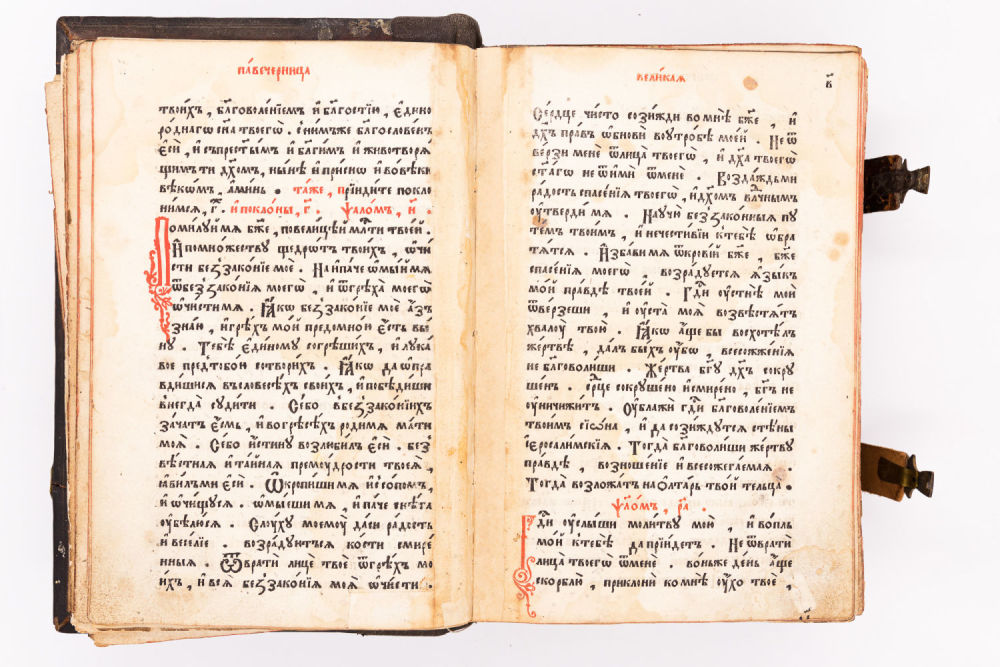 па́вечерница
твои́хъ , бл҃говоле́нїемъ и҆ бл҃гостїю , є҆дино
ро́днагѡ сн҃а твоегѡ̀ . с ни́мъже бл҃гослове́нъ
є҆сѝ , и҆ съпрест҃ы́мъ и҆ бл҃ги́мъ и҆ животворѧ́
щимъ ти дх҃омъ , ны́нѣ и҆ при́снѡ и҆ во вѣ́ки
вѣкѡ́мъ , а҆ми́нь . та́же , прїиди́те покло
ни́мсѧ , г҃. и҆ покло́ны , г҃. ѱало́мъ , н҃ .
Поми́луй мѧ бж҃е , по вели́цѣй мл҃ти твое́й .
И҆ по мно́жеству щедро́тъ твои́хъ , ѡ҆чи́
сти беззако́нїе моѐ . Наипа́че ѡ҆мы́й мѧ
ѿ беззако́нїѧ моегѡ̀ , и҆ ѿ грѣха̀ моегѡ̀
ѡ҆чи́сти мѧ . Ꙗ҆́кѡ беззако́нїе моѐ а҆́зъ
зна́ю , и҆ грѣ́хъ мо́й предомно́й є҆́сть вы́
ну . Тебѣ̀ є҆ди́ному согрѣши́хъ , и҆ лука́
вое пред тобо́ю сотвори́хъ . Ꙗ҆́кѡ да ѡ҆пра
вди́шисѧ въ словесѣ́хъ свои́хъ , и҆ побѣди́ши
внегда̀ суди́ти . Се́бо в беззако́нїихъ
зача́тъ є҆́смь , и҆ во грѣсѣ́хъ роди́ мѧ ма́ти
моѧ̀ . Се́бо и҆́стину возлюби́лъ є҆сѝ . без
вѣ́стнаѧ и҆ та́йнаѧ прему́дрости твоеѧ̀ ,
ꙗ҆ви́лъ ми є҆сѝ . Ѡ҆кропи́ши мѧ и҆ссо́помъ ,
и҆ ѡ҆чи́щусѧ . ѡ҆мы́еши мѧ , и҆ па́че снѣ́га
оу҆бѣлю́сѧ . Слу́ху моему̀ да́си ра́дость
и҆ весе́лїе . возра́дуютсѧ ко́сти смире́
нныѧ . Ѿвратѝ лицѐ твоѐ ѿ грѣ́хъ мо
и́хъ , и҆ всѧ̀ беззако́нїѧ моѧ̀ ѡ҆чи́сти .
вели́каѧ
в҃
Се́рдце чи́сто сози́жди во мнѣ̀ бж҃е , и҆
дх҃ъ пра́въ ѡ҆бновѝ во утро́бѣ мое́й . Не ѿ
ве́рзи менѐ ѿ лица̀ твоегѡ̀ , и҆ дх҃а твоегѡ̀
ст҃а́гѡ не ѿимѝ ѿ менѐ . Возда́ждь ми
ра́дость спасе́нїѧ твоегѡ̀ , и҆ дх҃омъ влⷣчнымъ
оу҆тверди́ мѧ . Научу̀ беззако́нныѧ пу
те́мъ твои́мъ , и҆ нечести́вїи к тебѣ̀ ѡ҆бра
тѧ́тсѧ . И҆зба́ви мѧ ѿ кро́вїй бж҃е , бж҃е
спасе́нїѧ моегѡ̀ , возра́дуетсѧ ѧ҆зы́къ
мо́й пра́вдѣ твое́й . Гдⷭ҇и оу҆стнѣ̀ мо́й
ѿве́рзеши , и҆ оу҆ста̀ моѧ̀ возвѣстѧ́тъ
хвалу̀ твою̀ . Ꙗ҆́кѡ а҆́ще бы восхотѣ́лъ
же́ртвѣ , да́лъ бы́хъ оу҆́бѡ , всесожже́нїѧ
не благоволи́ши . Же́ртва бг҃у дх҃ъ сокру
ше́нъ . срⷣце сокруше́но и҆ смире́но , бг҃ъ не
оу҆ничижи́тъ . Оу҆блажѝ гдⷭ҇и благоволе́нїемъ
твои́мъ сїѡ́на , и҆ да сози́ждутсѧ стѣ́ны
і҆ерⷭ҇али́мскїѧ . Тогда̀ бл҃говоли́ши же́ртву
пра́вдѣ , возноше́нїе и҆ всесожега́емаѧ .
Тогда̀ возложа́тъ на ѻ҆лта́рь тво́й тельца̀ .
ѱало́мъ , р҃а .
Гдⷭ҇и оу҆слы́ши моли́тву мою̀ , и҆ во́пль
мо́й к тебѣ̀ да прїи́детъ . Не ѿвратѝ
лица̀ твоегѡ̀ ѿ менѐ . во́ньже де́нь а҆́ще
скорблю̀ , приклонѝ ко мнѣ̀ оу҆́хо твоѐ ,